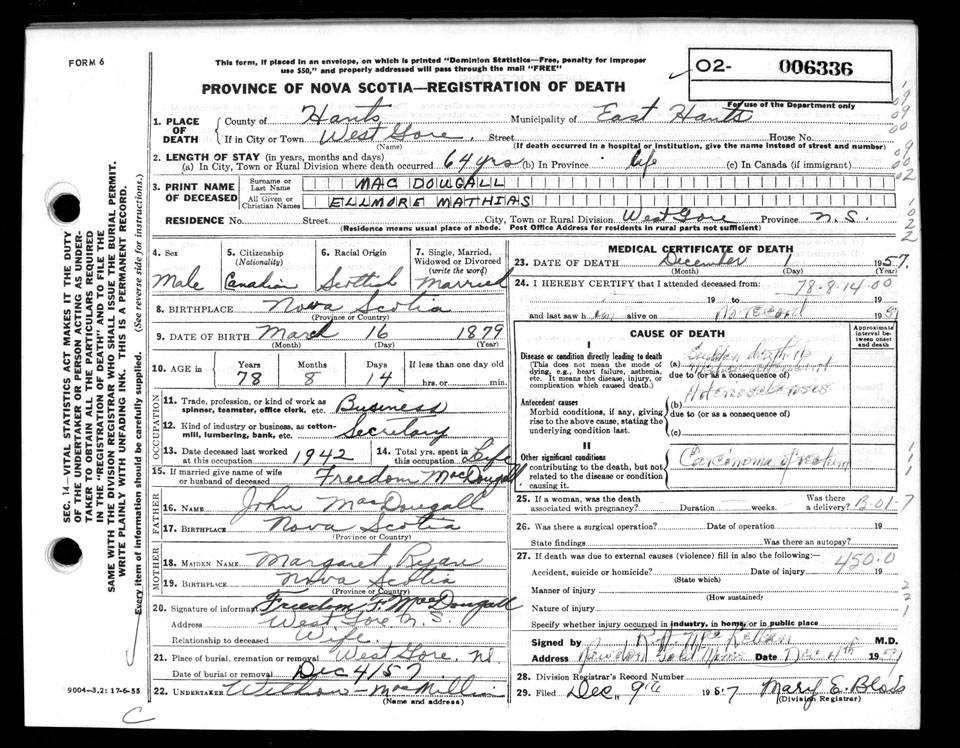 FORM 6
This form, if placed in an envelope, on which is printed "Dominion Statistics—Free, penalty for improper
use $50," and properly addressed will pass through the mail "FREE"
PROVINCE OF NOVA SCOTIA—REGISTRATION OF DEATH
02- 006336
For use of the Department only
1. PLACE OF DEATH County of Hants Municipality of East Hants
If in City or Town West Gore Street House No.
(Name) (If death occurred in a hospital or institution, give the name instead of street and number)
2. LENGTH OF STAY (in years, months and days)
(a) In City, Town or Rural Division where death occurred 64 yrs (b) In Province life (c) In Canada (if immigrant)
3. PRINT NAME OF DECEASED Surname or Last Name MAC DOUGALL
All Given or Christian Names ELLMORE MATHIAS
RESIDENCE No. Street City, Town or Rural Division West Gore Province N.S.
(Residence means usual place of abode. Post Office Address for residents in rural parts not sufficient)
4. Sex 5. Citizenship (Nationality) 6. Racial Origin 7. Single, Married, Widowed or Divorced (write the word)
Male Canadian Scottish Married
8. BIRTHPLACE Nova Scotia
(Province or Country)
9. DATE OF BIRTH March 16 1879
(Month) (Day) (Year)
10. AGE in Years Months Days If less than one day old
78 8 14 hrs. or min.
OCCUPATION
11. Trade, profession, or kind of work as spinner, teamster, office clerk, etc. Business
12. Kind of industry or business, as cotton-mill, lumbering, bank, etc. Secretary
13. Date deceased last worked at this occupation 1942 14. Total yrs. spent in this occupation Life
15. If married give name of wife or husband of deceased Freedom MacDougall
FATHER
16. Name John MacDougall
17. Birthplace Nova Scotia
(Province or Country)
MOTHER
18. Maiden Name Margaret Ryan
19. Birthplace Nova Scotia
(Province or Country)
20. Signature of informant Freedom F. MacDougall
Address West Gore N.S.
Relationship to deceased Wife
21. Place of burial, cremation or removal West Gore, N.S.
Date of burial or removal Dec 4/57
22. Undertaker MacMillin
(Name and address)
9004—3.2: 17-6-55
C
MEDICAL CERTIFICATE OF DEATH
23. DATE OF DEATH December 1 1957.
(Month) (Day) (Year)
24. I HEREBY CERTIFY that I attended deceased from: 78-8-14-00
19 to 19
and last saw h alive on 19
CAUSE OF DEATH
Approximate interval between onset and death
I
Disease or condition directly leading to death
(This does not mean the mode of dying, e.g., heart failure, asthenia, etc. It means the disease, injury, or complication which caused death.)
(a) Sudden death
due to (or as a consequence of)
Antecedent causes
Morbid conditions, if any, giving rise to the above cause, stating the underlying condition last.
(b)
due to (or as a consequence of)
(c)
II
Other significant conditions contributing to the death, but not related to the disease or condition causing it.
Carcinoma of rectum
25. If a woman, was the death associated with pregnancy? Duration weeks. Was there a delivery? B-01-7
26. Was there a surgical operation? Date of operation 19
State findings Was there an autopsy?
27. If death was due to external causes (violence) fill in also the following:— 450.0
Accident, suicide or homicide? Date of injury 19
(State which)
Manner of injury
(How sustained)
Nature of injury
Specify whether injury occurred in industry, in home, or in public place
Signed by M.D.
Address Date Dec 4th 19
28. Division Registrar's Record Number
29. Filed Dec. 9th 1957 Mary E. Blois
(Division Registrar)
SEC. 14—VITAL STATISTICS ACT MAKES IT THE DUTY
OF THE UNDERTAKER OR PERSON ACTING AS UNDER-
TAKER TO OBTAIN ALL THE PARTICULARS REQUIRED
IN THE "REGISTRATION OF DEATH" AND TO FILE THE
SAME WITH THE DIVISION REGISTRAR WHO SHALL ISSUE THE BURIAL PERMIT.
WRITE PLAINLY WITH UNFADING INK. THIS IS A PERMANENT RECORD.
Every item of information should be carefully supplied. (See reverse side for instructions.)